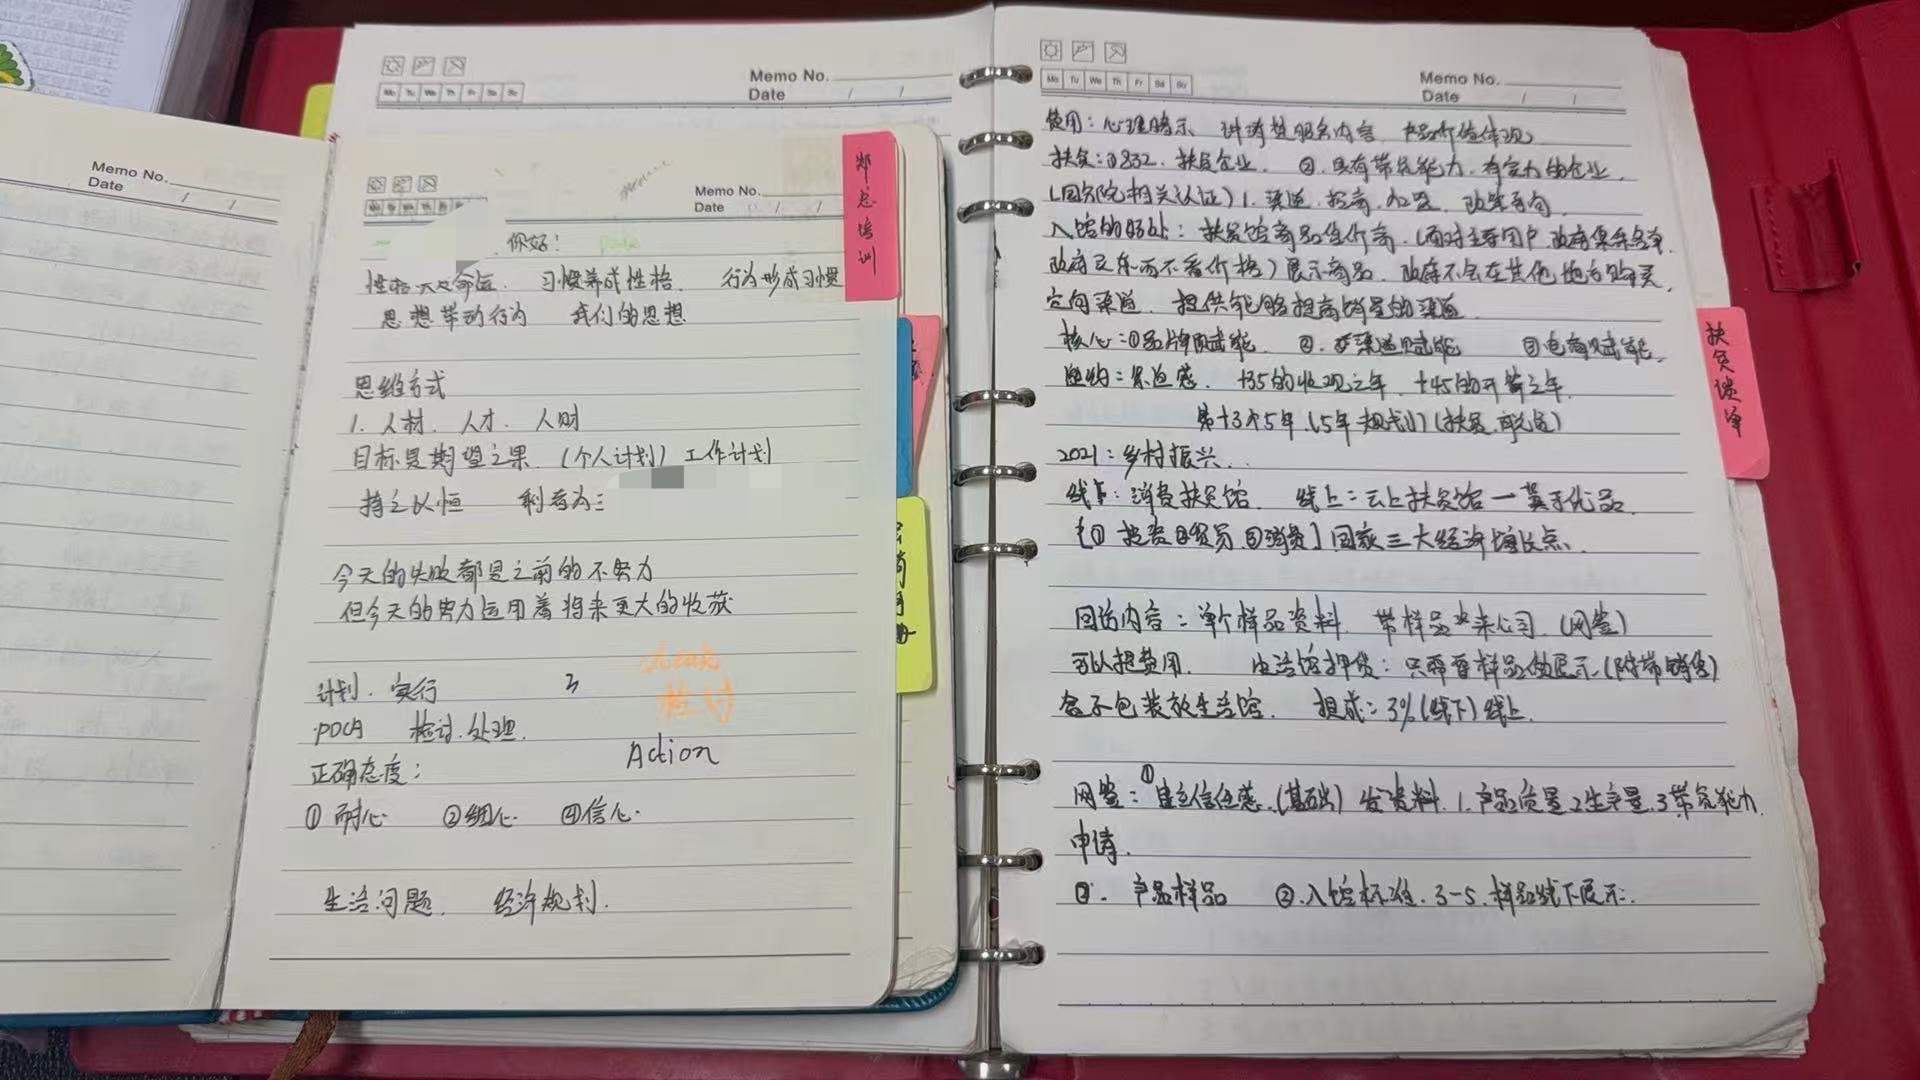 Memo No.
Date / /
Memo No.
Date / /
Mo Tu We Th Fr Sa Su
Memo No.
Date / /
你好！
性格决定命运. 习惯养成性格. 行为形成习惯
思想带动行为 我们的思想
思维方式
1. 人材. 人才. 人财
目标是期望之果.（个人计划）工作计划
持之以恒 剩者为王
今天的失败都是之前的不努力
但今天的努力运用着将来更大的收获
计划. 实行 3
检讨
PDCA 检讨.处理.
Action
正确态度：
① 耐心 ②细心 ④信心.
生活问题. 经济规划.
郑总培训
Mo Tu We Th Fr Sa Su
Memo No.
Date / /
费用：心理暗示 讲清楚服务内容 产品价值体现
扶贫：①832. 扶贫企业. ②.具有带贫能力.有实力的企业.
（国务院相关认证）1. 渠道.招商.加盟. 政策导向.
入馆的好处：扶贫馆商品售价高.（面对主要用户.政府集采名单.
政府买东西不看价格）展示商品. 政府不会在其他地方购买.
定向渠道. 提供能够提高销量的渠道.
核心：①品牌赋能. ②.渠道赋能 ③电商赋能.
逼约：紧迫感. 十35的收现之年. 十45的开篇之年.
第十3个5年.（5年规划）（扶贫.脱贫）
2021：乡村振兴...
线下：消费扶贫馆. 线上：云上扶贫馆一冀予优品.
【① 投资②贸易.③消费】国家三大经济增长点.
回访内容：单个样品资料. 带样品来公司.（网鉴）
可以提费用. 生活馆押货：只需要样品做展示.（附带销售）
含不包装放生活馆. 提成：3%（线下）线上.
网鉴：①建立信任感.（基础）发资料. 1.产品质量.2生产量.3带贫能力.
申请.
②. 产品样品 ②.入馆标准. 3-5.样品线下展示.
扶贫谈单